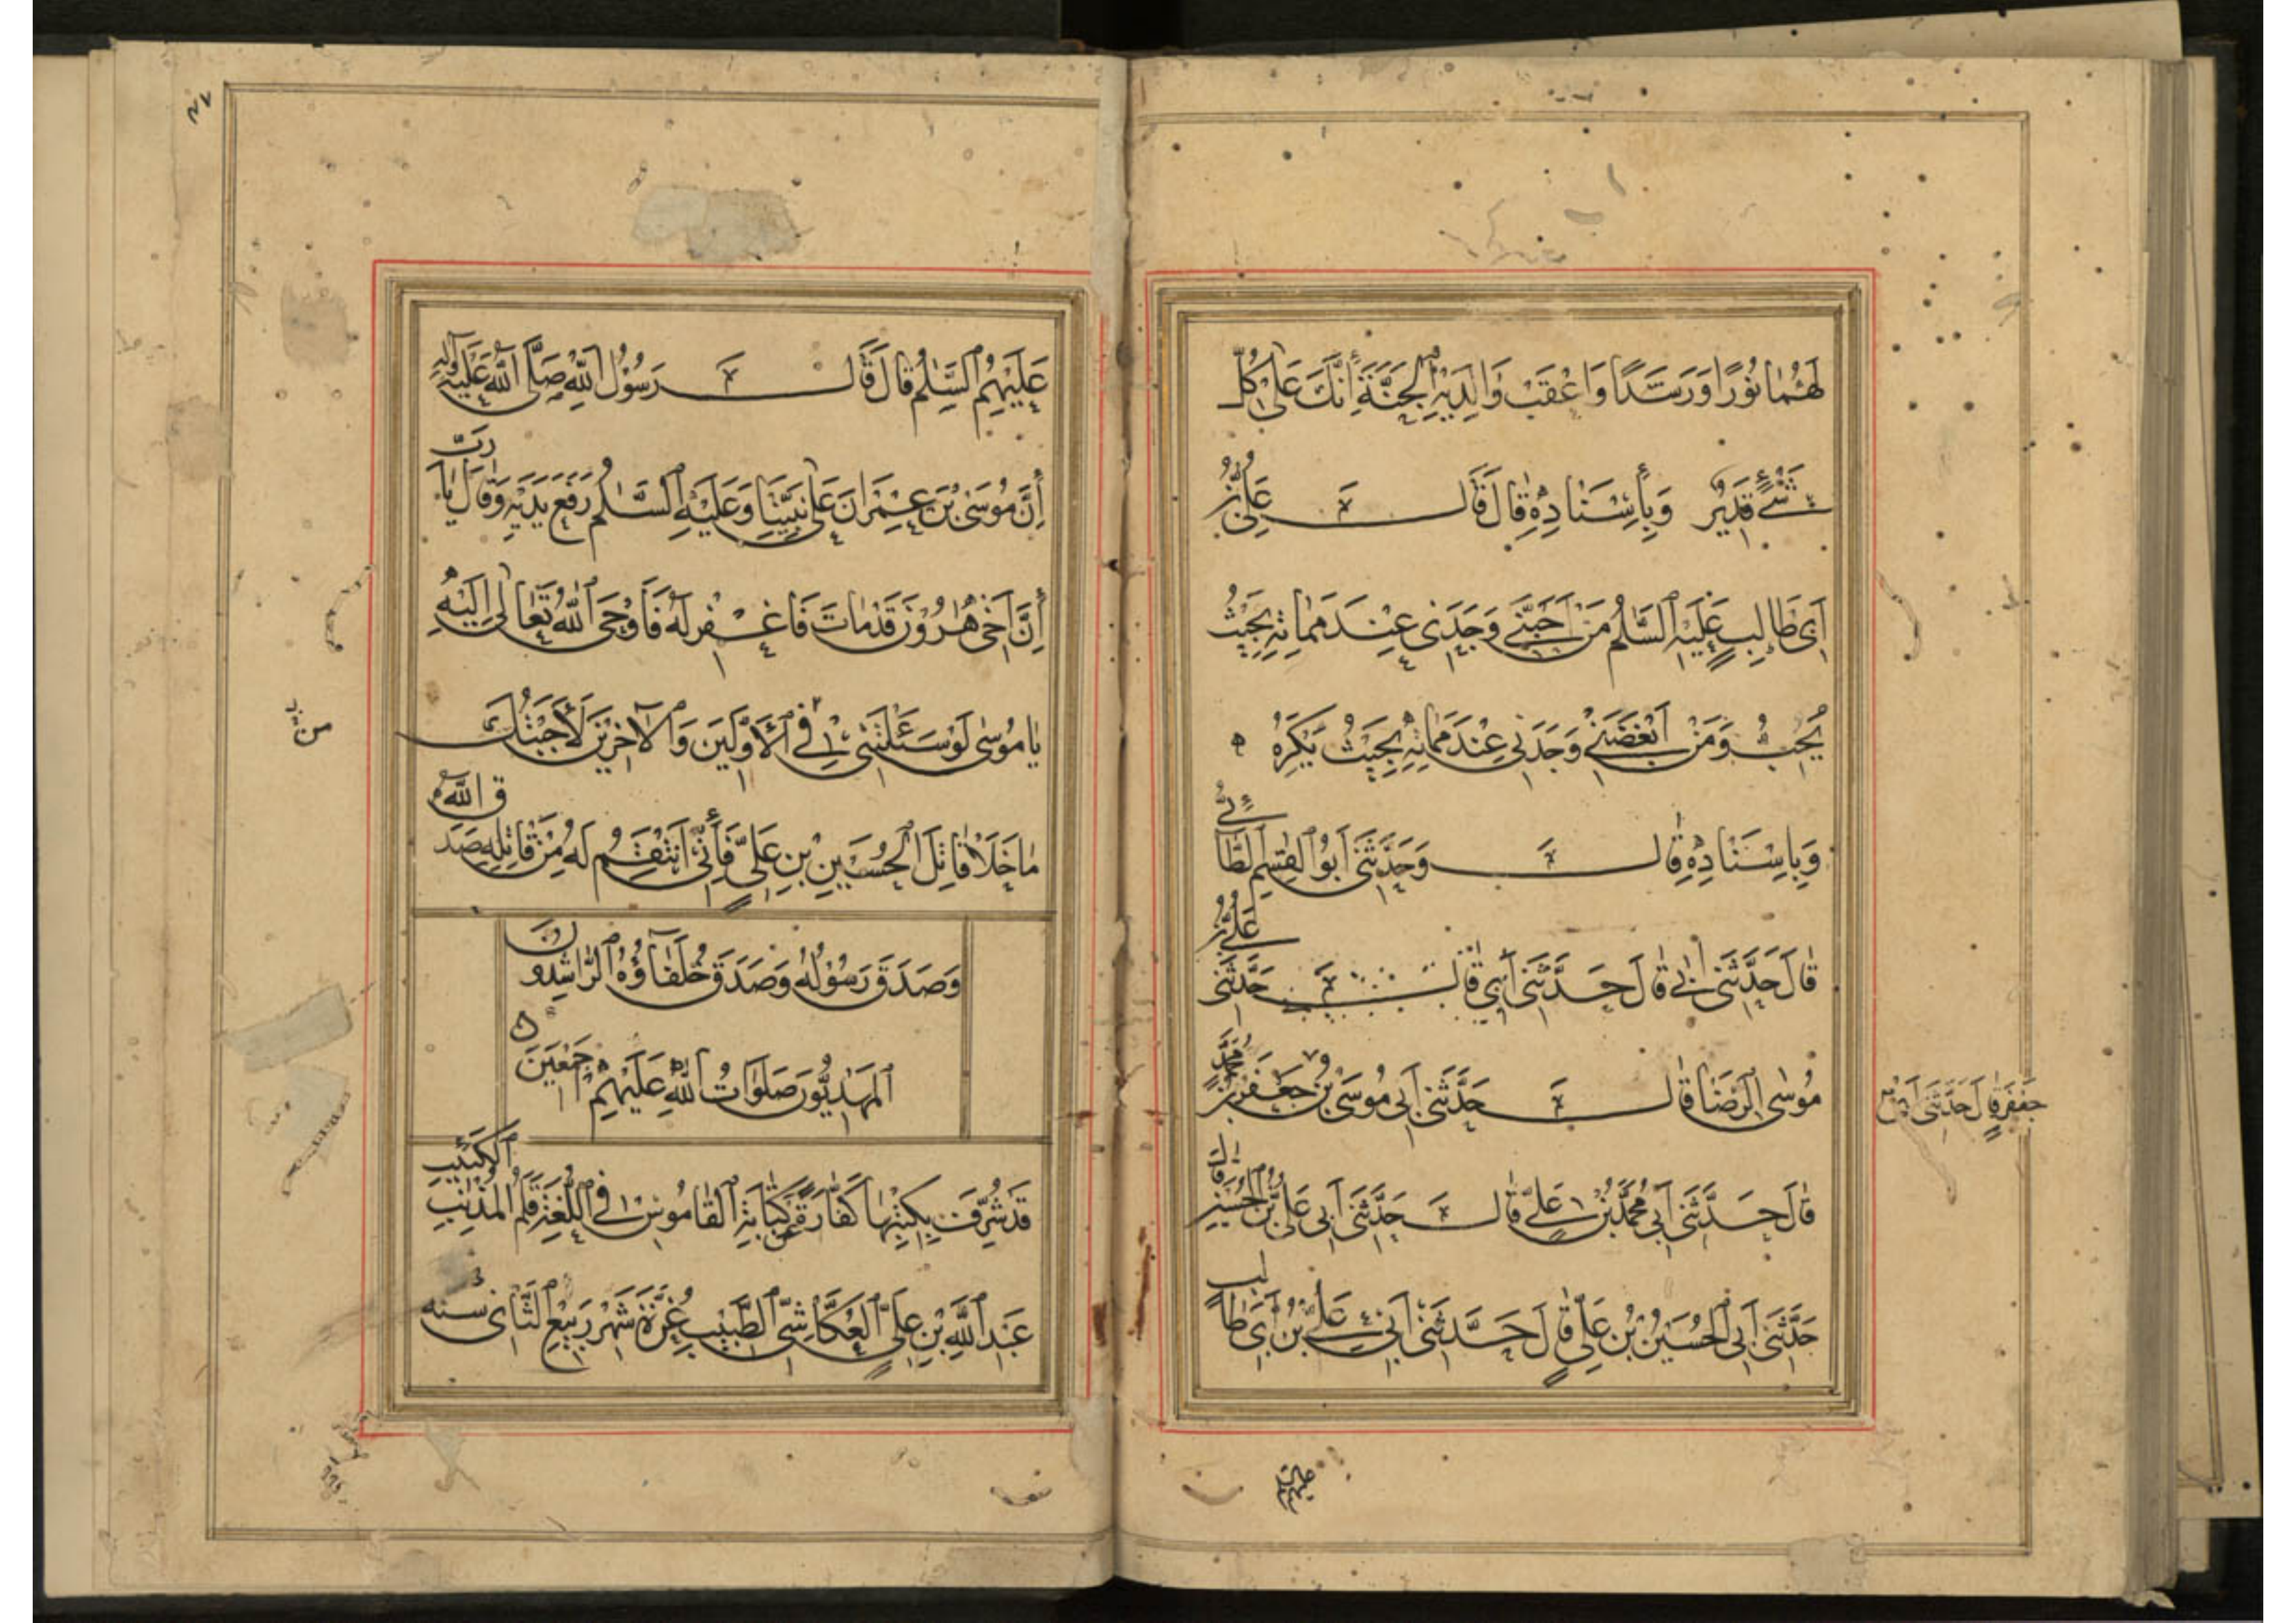 لَهُمَا نُورًا وَرَشَدًا وَاَعْقَبَ وَالِدَيْهِ الْجَنَّةَ اِنَّكَ عَلَى كُلِّ
شَيْءٍ قَدِيرٌ وَبِأِسْنَادِهِ قَالَ قَالَ عَلِيُّ بْنُ
اَبِي طَالِبٍ عَلَيْهِ السَّلٰمُ مَنْ اَحَبَّنِي وَجَدَنِي عِنْدَ مَمَاتِهِ بِحَيْثُ
يُحِبُّ وَمَنْ اَبْغَضَنِي وَجَدَنِي عِنْدَ مَمَاتِهِ بِحَيْثُ يَكْرَهُ ه
وَبِاِسْنَادِهِ قَالَ وَحَدَّثَنِي اَبُو الْقٰسِمِ الطَّائِيُّ
قَالَ حَدَّثَنِي اَبِي قَالَ حَدَّثَنِي اَبِي قَالَ حَدَّثَنِي عَلِيُّ بْنُ
مُوسَى الرِّضَا قَالَ حَدَّثَنِي اَبِي مُوسَى بْنُ جَعْفَرِ بْنِ مُحَمَّدٍ
جَعْفَر قَالَ حَدَّثَنِي اَبِي
قَالَ حَدَّثَنِي اَبِي مُحَمَّدُ بْنُ عَلِيٍّ قَالَ حَدَّثَنِي اَبِي عَلِيُّ بْنُ الْحُسَيْنِ قَالَ
حَدَّثَنِي اَبِي الْحُسَيْنُ بْنُ عَلِيٍّ قَالَ حَدَّثَنِي اَبِي عَلِيُّ بْنُ اَبِي طَالِبٍ
عليهم
عَلَيْهِمُ السَّلٰمُ قَالَ قَالَ رَسُولُ اللهِ صَلَّى اللهُ عَلَيْهِ وَآلِهِ
اِنَّ مُوسَى بْنَ عِمْرَانَ عَلَى نَبِيِّنَا وَعَلَيْهِ السَّلٰمُ رَفَعَ يَدَيْهِ وَقَالَ يَا رَبِّ
اِنَّ اَخِي هٰرُونَ قَدْ مَاتَ فَاغْفِرْ لَهُ فَاَوْحَى اللهُ تَعَالَى اِلَيْهِ
يَا مُوسَى لَوْ سَئَلْتَنِي فِي الْاَوَّلِينَ وَالْآخِرِينَ لَاَجَبْتُكَ
مَا خَلَا قَاتِلَ الْحُسَيْنِ بْنِ عَلِيٍّ فَاِنِّي اَنْتَقِمُ لَهُ مِنْ قَاتِلِهِ صَدَقَ اللهُ
وَصَدَقَ رَسُولُهُ وَصَدَقَ خُلَفَآؤُهُ الرَّاشِدُونَ
الْمَهْدِيُّونَ صَلَوَاتُ اللهِ عَلَيْهِمْ اَجْمَعِينَ ه
قَدْ شُرِّفَتْ بِكِتْبِهَا كَفَّارَةً عَنْ كِتَابَةِ الْقَامُوسِ فِي اللُّغَةِ قَلَمُ الْمُذْنِبِ الْكَئِيبِ
عَبْدِ اللهِ بْنِ عَلِيٍّ الْعُكَّاشِيِّ الطَّبِيبِ غُرَّةَ شَهْرِ رَبِيعِ الثَّانِي سنه